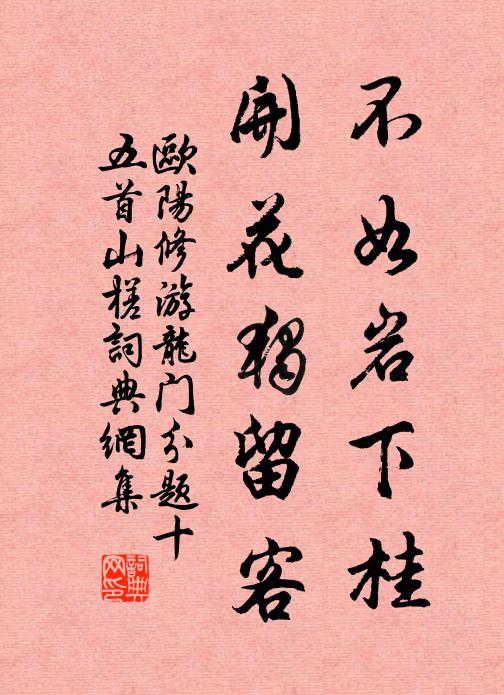 不如岩下桂
開花獨留客
歐陽修游龍门分题十
五首山槎詞典網集
詞典网印